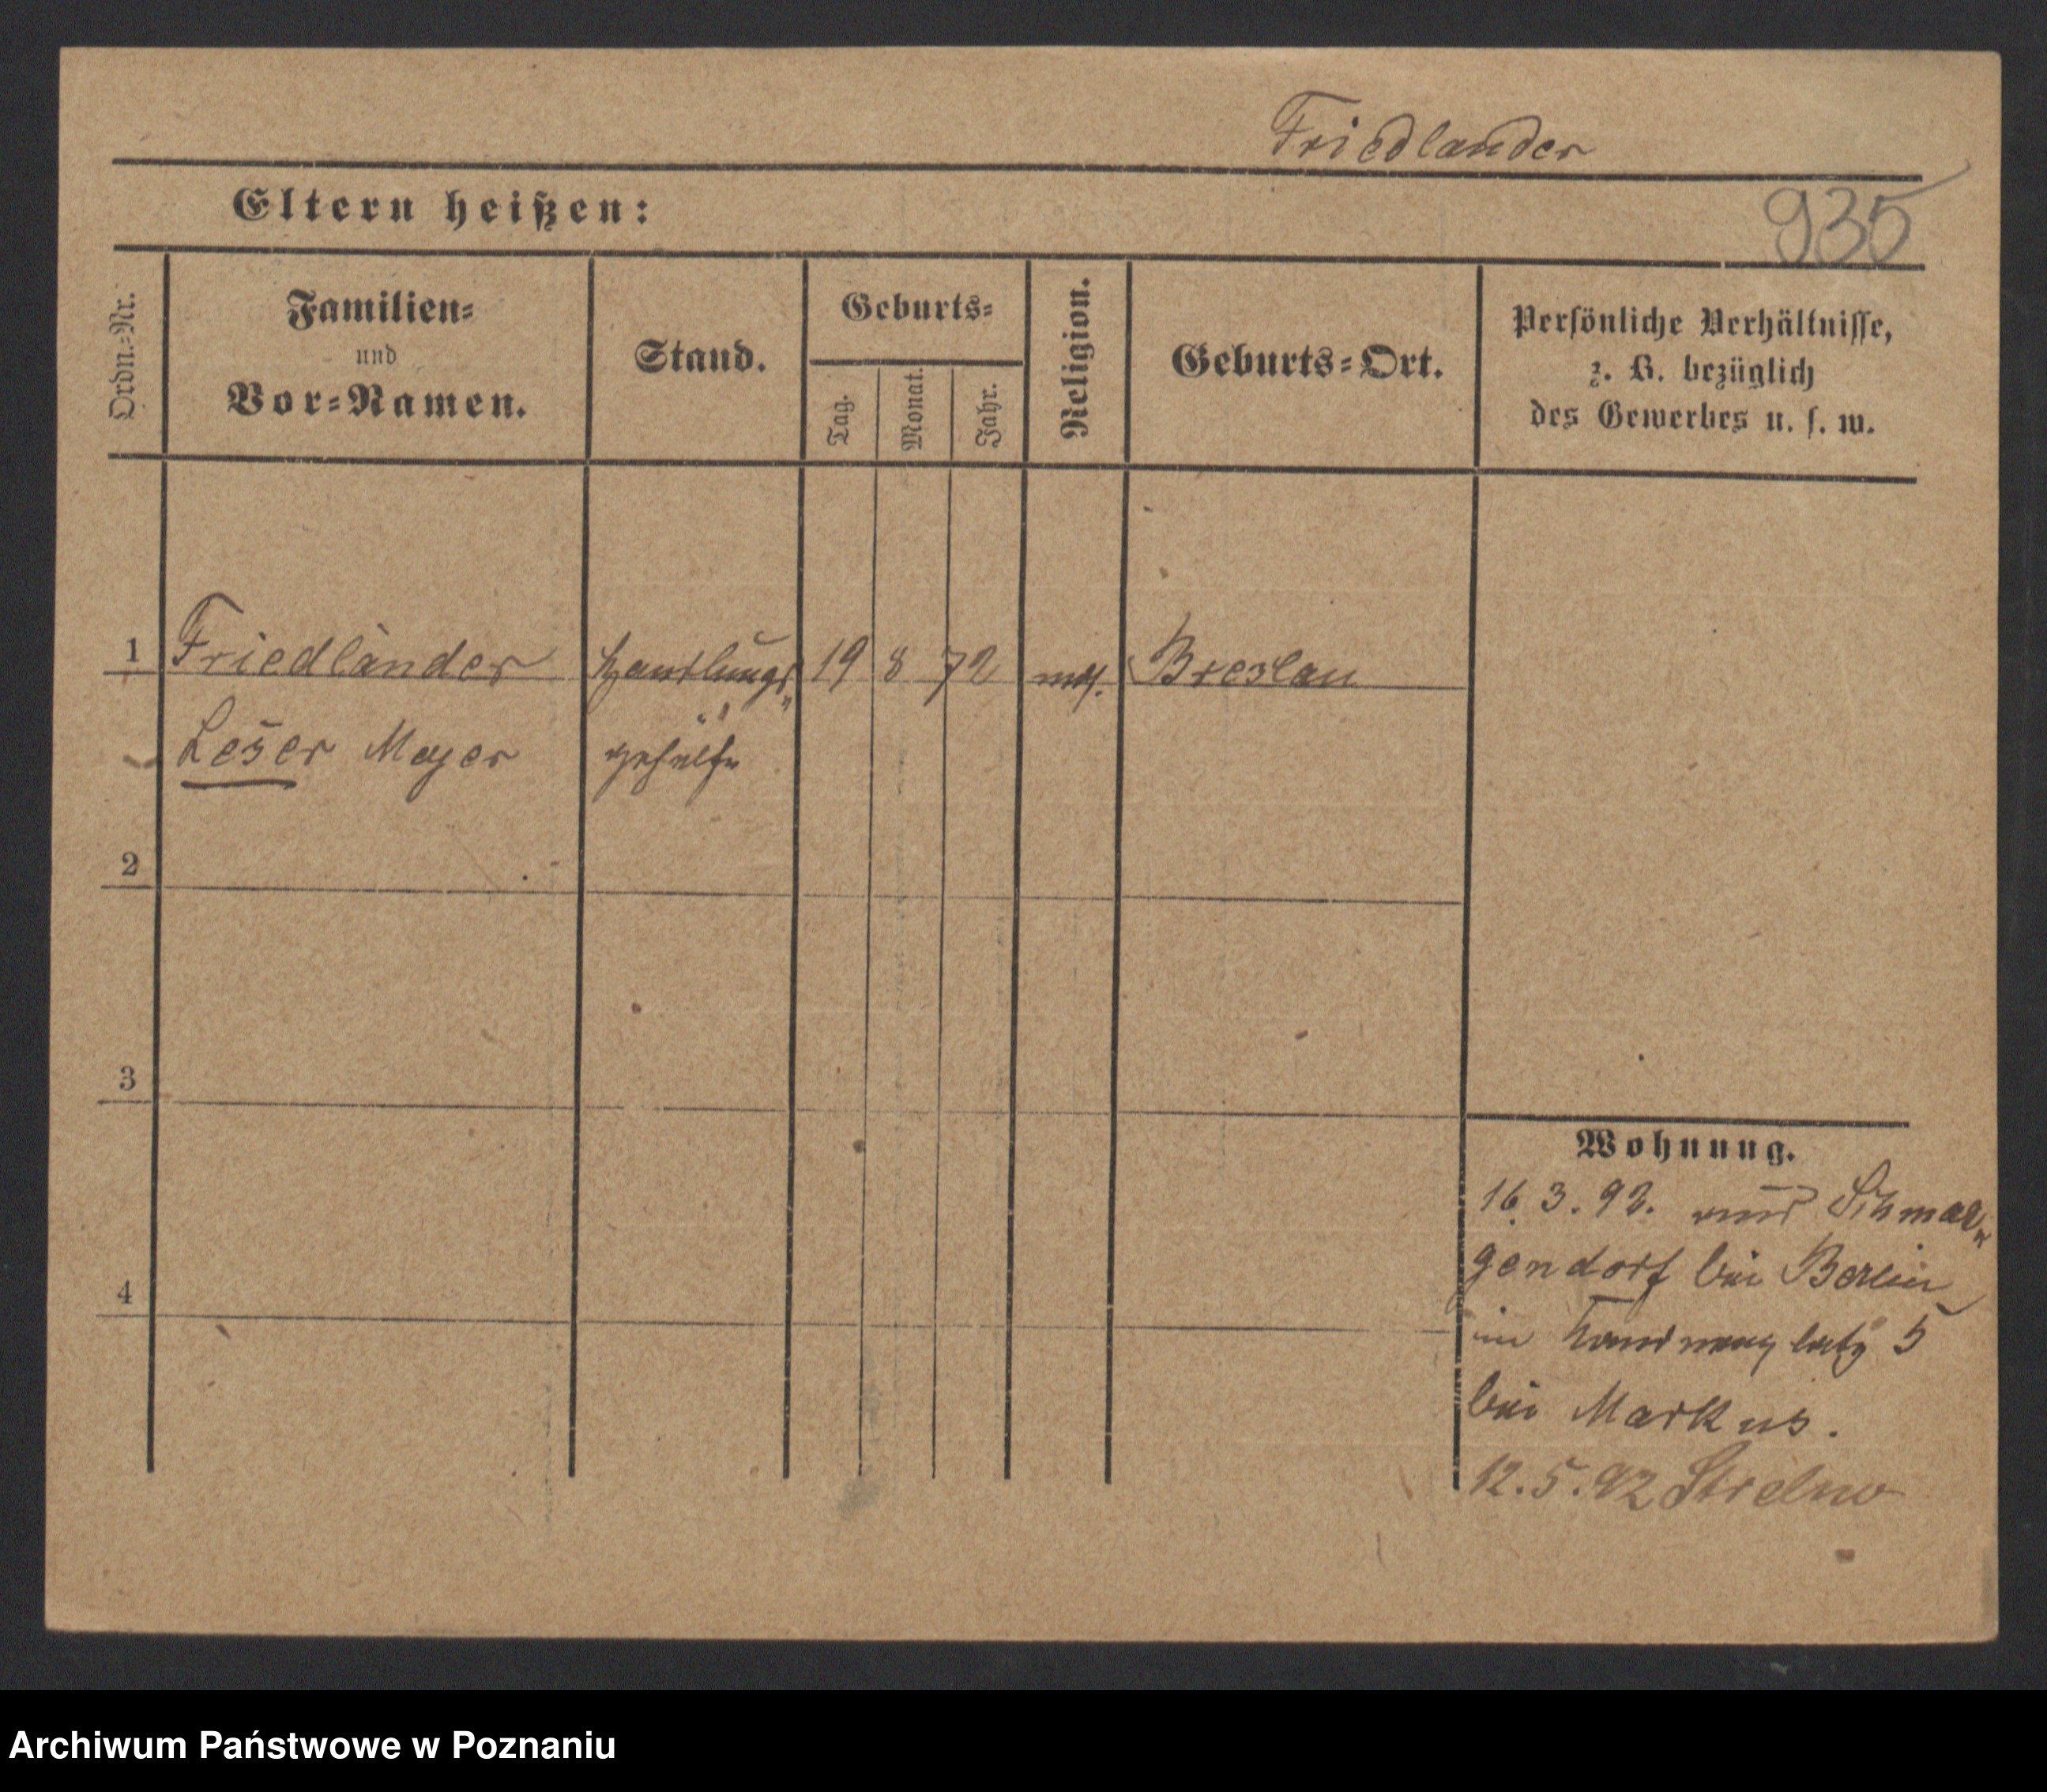 Friedlander
Eltern heißen:
935
Ordn.-Nr.
Familien-
und
Vor-Namen.
Stand.
Geburts-
Tag.
Monat.
Jahr.
Religion.
Geburts-Ort.
Persönliche Verhältnisse,
z. B. bezüglich
des Gewerbes u. s. w.
1 Friedländer Handlungs- 19 8 72 mos. Breslau
Leser Meyer gehülfe
2
3
4
Wohnung.
16. 3. 92. Schmar-
gendorf bei Berlin
in 5
bei Markus.
12. 5. 92 Strelno
Archiwum Państwowe w Poznaniu